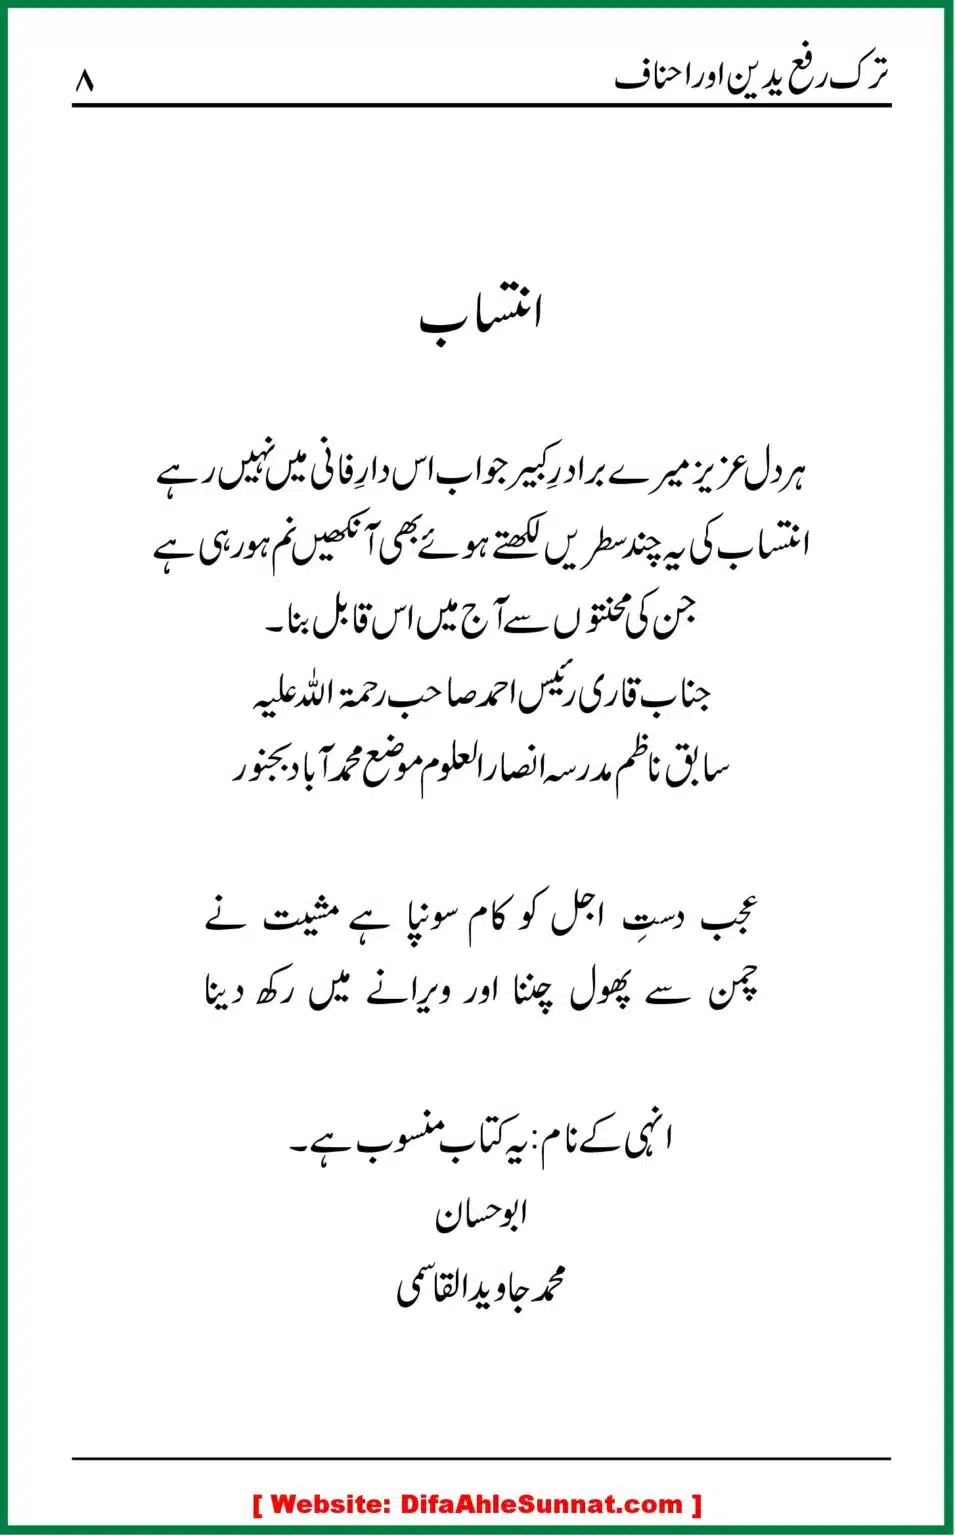 ترک رفع یدین اور احناف ۸
انتساب
ہر دل عزیز میرے برادرِ کبیر جو اب اس دارِ فانی میں نہیں رہے
انتساب کی یہ چند سطریں لکھتے ہوئے بھی آنکھیں نم ہو رہی ہے
جن کی محنتوں سے آج میں اس قابل بنا۔
جناب قاری رئیس احمد صاحب رحمۃ اللہ علیہ
سابق ناظم مدرسہ انصار العلوم موضع محمد آباد بجنور
عجب دستِ اجل کو کام سونپا ہے مشیت نے
چمن سے پھول چننا اور ویرانے میں رکھ دینا
انہی کے نام: یہ کتاب منسوب ہے۔
ابو حسان
محمد جاوید القاسمی
[ Website: DifaAhleSunnat.com ]